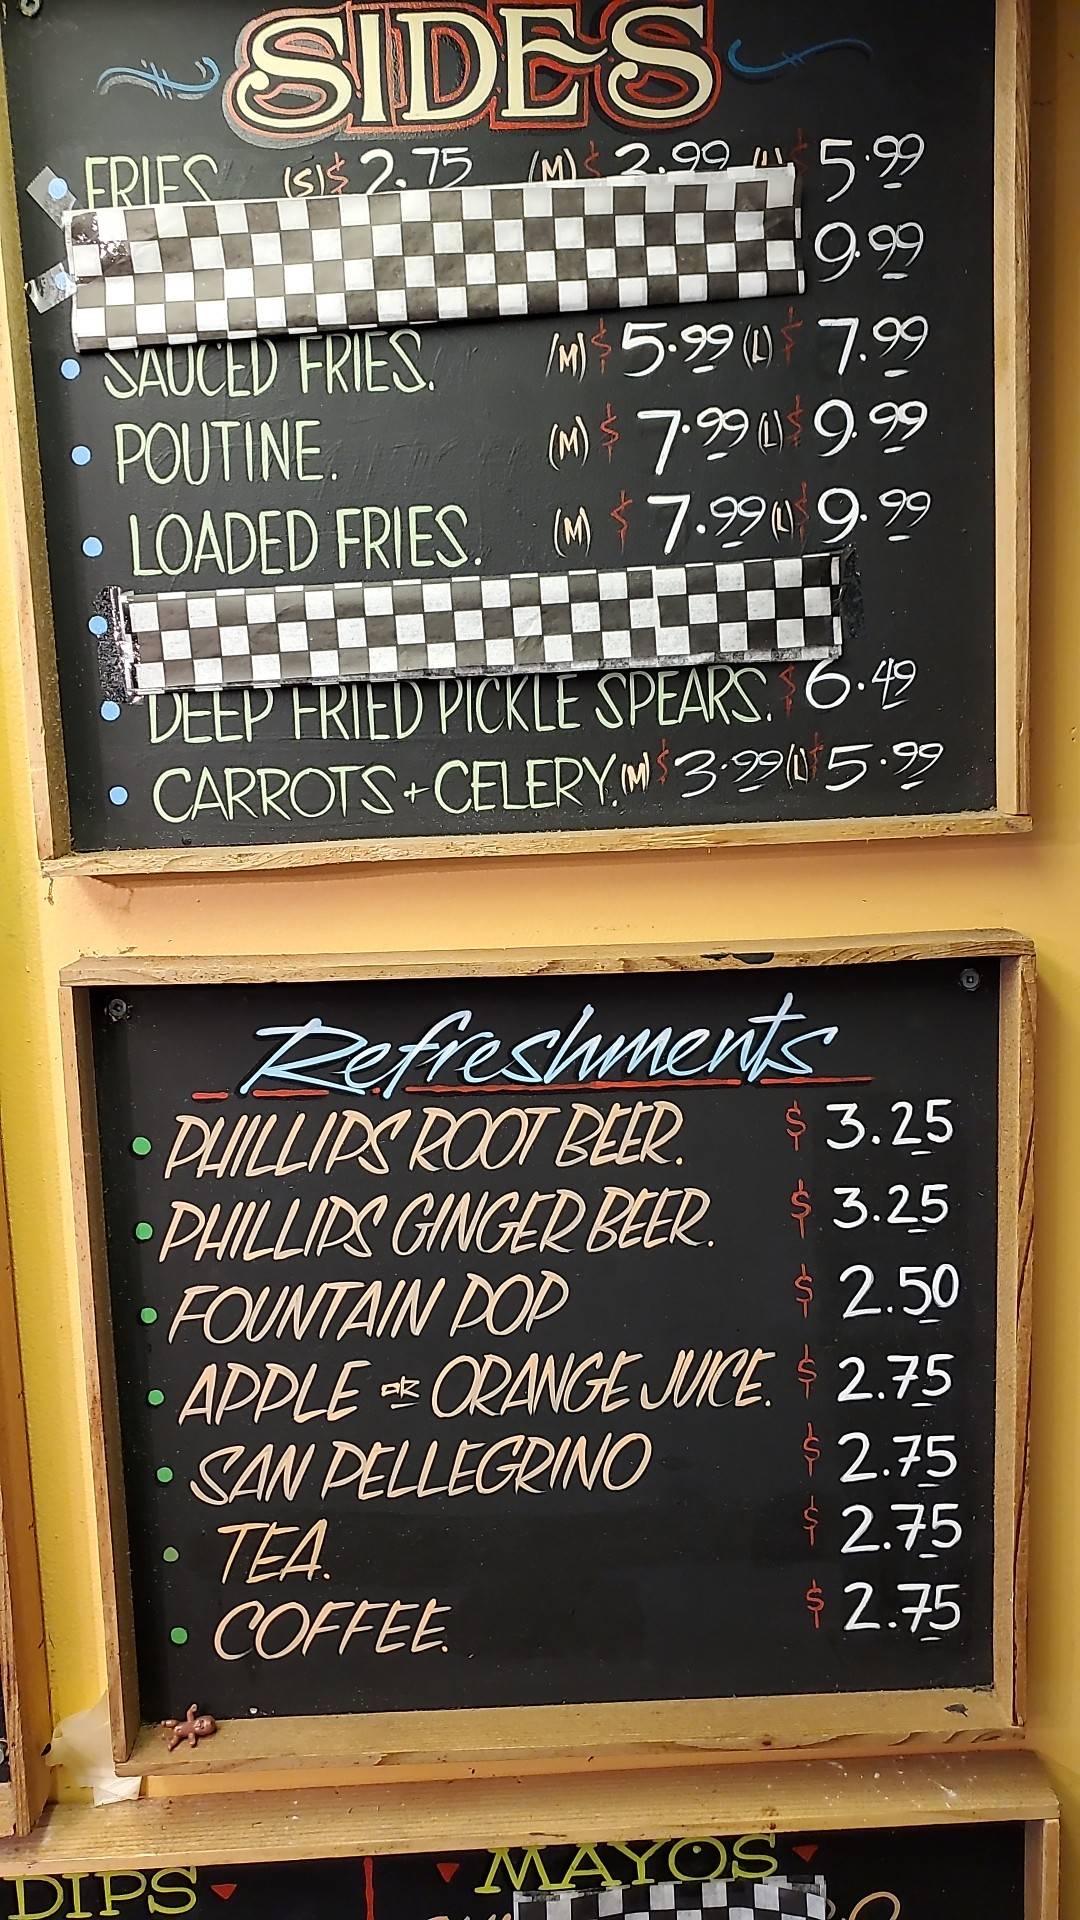 SIDES
FRIES (S) $ 2.75 (M) $ 3.99 (L) $ 5.99
9.99
SAUCED FRIES. (M) $ 5.99 (L) $ 7.99
POUTINE. (M) $ 7.99 (L) $ 9.99
LOADED FRIES. (M) $ 7.99 (L) $ 9.99
DEEP FRIED PICKLE SPEARS. $ 6.49
CARROTS + CELERY. (M) $ 3.99 (L) $ 5.99
Refreshments
PHILLIPS ROOT BEER. $ 3.25
PHILLIPS GINGER BEER. $ 3.25
FOUNTAIN POP $ 2.50
APPLE OR ORANGE JUICE. $ 2.75
SAN PELLEGRINO $ 2.75
TEA. $ 2.75
COFFEE. $ 2.75
DIPS
MAYOS